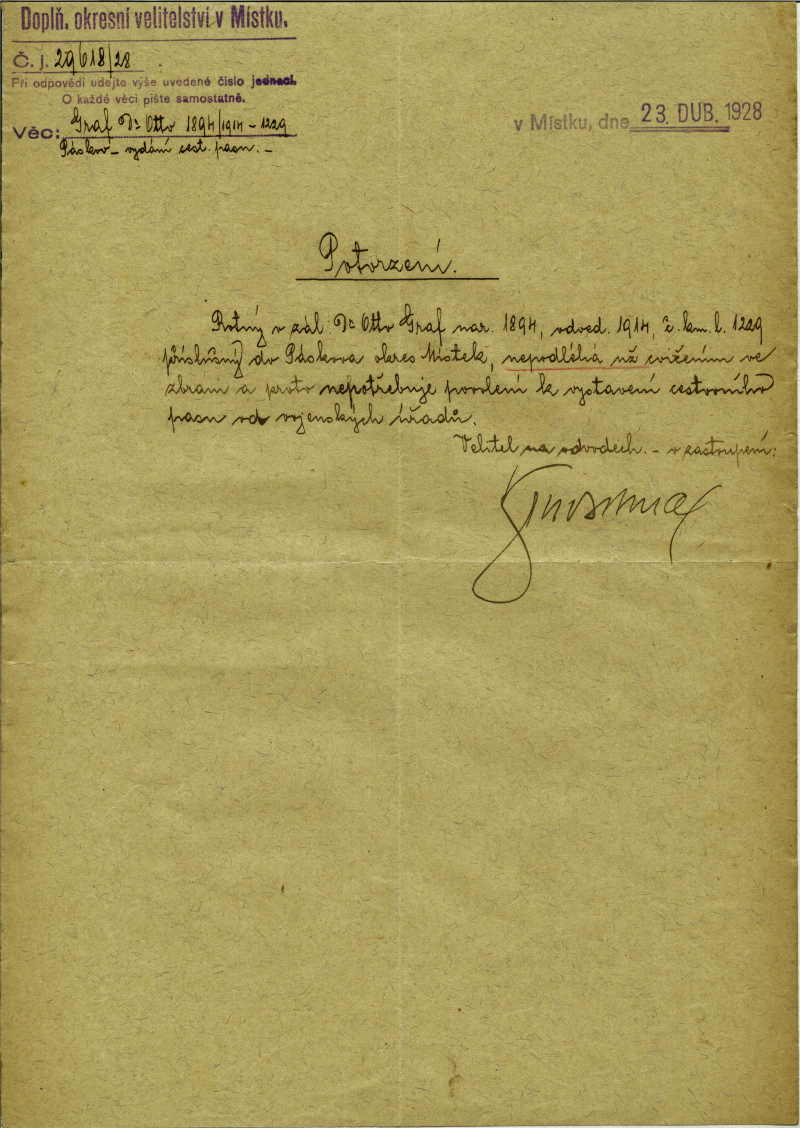 Doplň. okresní velitelství v Místku.
Č. j. 29618/28
Při odpovědi udejte výše uvedené číslo jednací.
O každé věci pište samostatně.
Věc: Graf Dr Otto 1894/1914 – 1229
Páskov – vydání cest. pasu. –
v Místku, dne 23. DUB. 1928
Potvrzení.
Rotný v zál. Dr Otto Graf nar. 1894, odved. 1914, č. km. l. 1229
příslušný do Páskova okres Místek, nepodléhá už cvičením ve
zbrani a proto nepotřebuje povolení k vystavení cestovního
pasu od vojenských úřadů.
Velitel na odvodech. – v zastoupení: